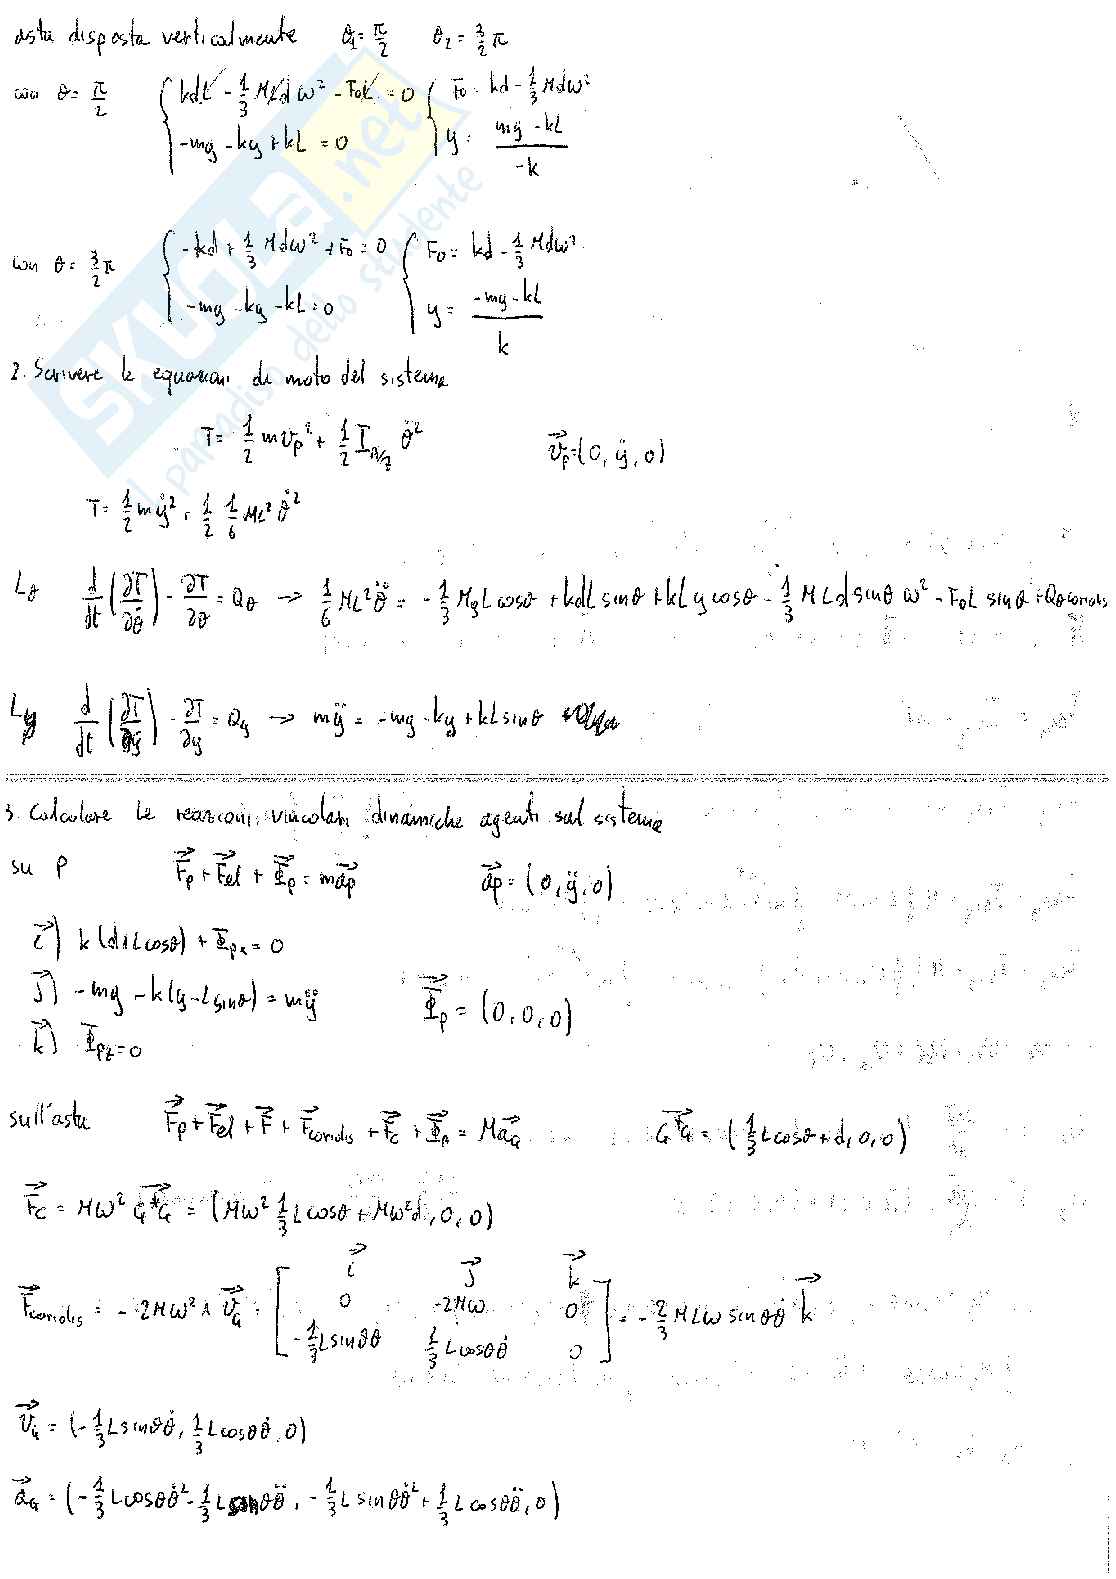 asta disposta verticalmente θ₁ = π/2 θ₂ = 3/2 π
con θ = π/2 { kdL - 1/3 MLdω² - F₀L = 0 { F₀ = kd - 1/3 Mdω²
-mg - ky + kL = 0 y = (mg - kL)/-k
con θ = 3/2 π { -kd + 1/3 Mdω² + F₀ = 0 { F₀ = kd - 1/3 Mdω²
-mg - ky - kL = 0 y = (-mg - kL)/k
2. Scrivere le equazioni di moto del sistema
T = 1/2 m v_P² + 1/2 I_A/z θ̇² v⃗_P = (0, ẏ, 0)
T = 1/2 mẏ² + 1/2 1/6 ML² θ̇²
L_θ d/dt (∂T/∂θ̇) - ∂T/∂θ = Q_θ → 1/6 ML² θ̈ = - 1/3 MgL cosθ + kdL sinθ + kLy cosθ - 1/3 MLd sinθ ω² - F₀L sinθ + Q_θ coriolis
L_y d/dt (∂T/∂ẏ) - ∂T/∂y = Q_y → mÿ = -mg - ky + kL sinθ
3. Calcolare le reazioni vincolari dinamiche agenti sul sistema
su P F⃗_P + F⃗el + Φ⃗_P = ma⃗_P a⃗_P = (0, ÿ, 0)
i⃗) k(d+L cosθ) + Φ_Px = 0
j⃗) -mg - k(y - L sinθ) = mÿ Φ⃗_P = (0, 0, 0)
k⃗) Φ_Pz = 0
sull'asta F⃗_P + F⃗el + F⃗ + F⃗coriolis + F⃗_C + Φ⃗_A = Ma⃗_G G*G = (1/3 L cosθ + d, 0, 0)
F⃗_C = Mω² G*G = (Mω² 1/3 L cosθ + Mω²d, 0, 0)
F⃗coriolis = -2Mω² ∧ v⃗_G = [ i⃗ j⃗ k⃗
0 -2Mω 0
-1/3 L sinθ θ̇ 1/3 L cosθ θ̇ 0 ] = - 2/3 MLω sinθ θ̇ k⃗
v⃗_G = (-1/3 L sinθ θ̇, 1/3 L cosθ θ̇, 0)
a⃗_G = (-1/3 L cosθ θ̇² - 1/3 L sinθ θ̈, -1/3 L sinθ θ̇² + 1/3 L cosθ θ̈, 0)
SKUOLA.net
il paradiso dello studente